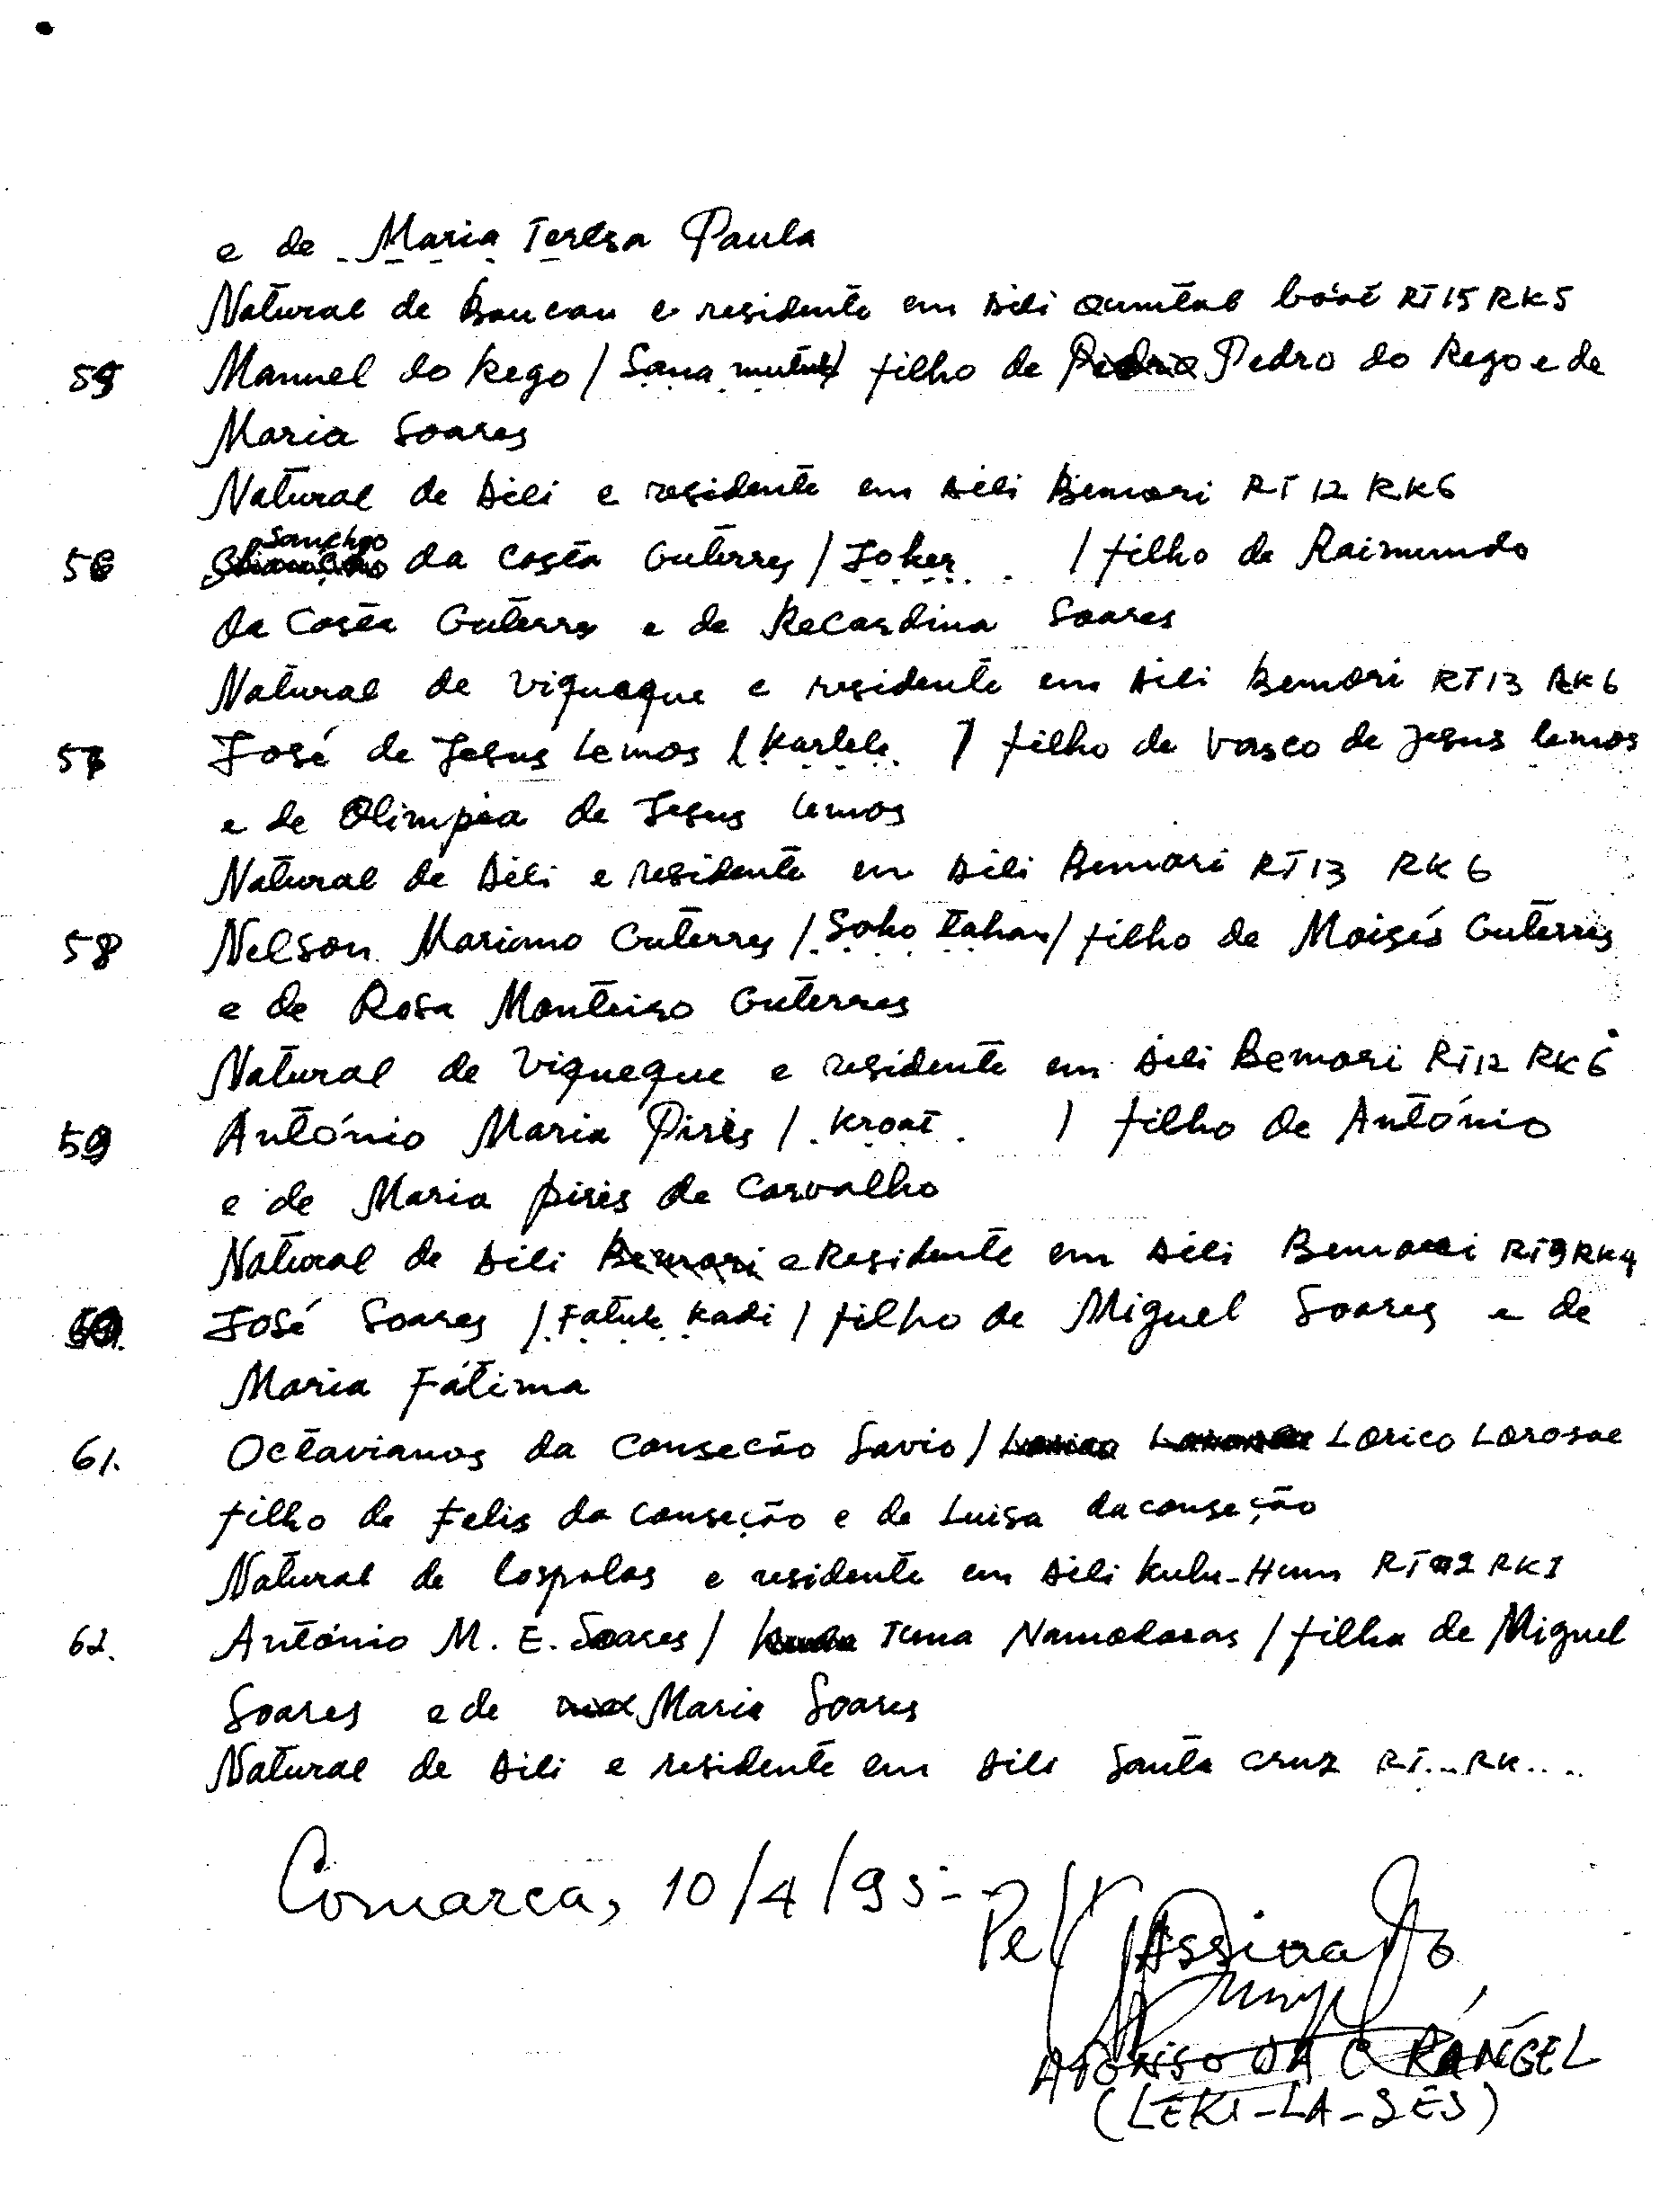 e de Maria Teresa Paula
Natural de Baucau e residente em Dili Quintal boot RT 15 RK 5
55 Manuel do Rego / Sana mutuk / filho de Pedro do Rego e de
Maria Soares
Natural de Dili e residente em Dili Bemori RT 12 RK 6
56 Sanchgo da Costa Guterres / Joker / filho de Raimundo
da Costa Guterres e de Recardina Soares
Natural de Viqueque e residente em Dili Bemori RT 13 RK 6
57 José de Jesus Lemos / Karlele / filho de Vasco de Jesus Lemos
e de Olimpia de Jesus Lemos
Natural de Dili e residente em Dili Bemori RT 13 RK 6
58 Nelson Mariano Guterres / Soko Tahan / filho de Moisés Guterres
e de Rosa Monteiro Guterres
Natural de Viqueque e residente em Dili Bemori RT 12 RK 6
59 António Maria Pires / Kroat / filho de António
e de Maria Pires de Carvalho
Natural de Dili Bemori e Residente em Dili Bemori RT 9 RK 4
60. José Soares / Fatuk Kadi / filho de Miguel Soares e de
Maria Fátima
61. Octavianos da Conseção Savio / Lorico Lorosae
filho de Felis da Conseção e de Luisa da conseção
Natural de Lospalos e residente em Dili Kulu-Hun RT 02 RK I
62. António M. E. Soares / Tuna Namodaras / filho de Miguel
Soares e de Maria Soares
Natural de Dili e residente em Dili Santa Cruz RT... RK....
Comarca, 10/4/95-
Pel Assinado
AFONSO DA C RANGEL
(LEKI-LA-SES)